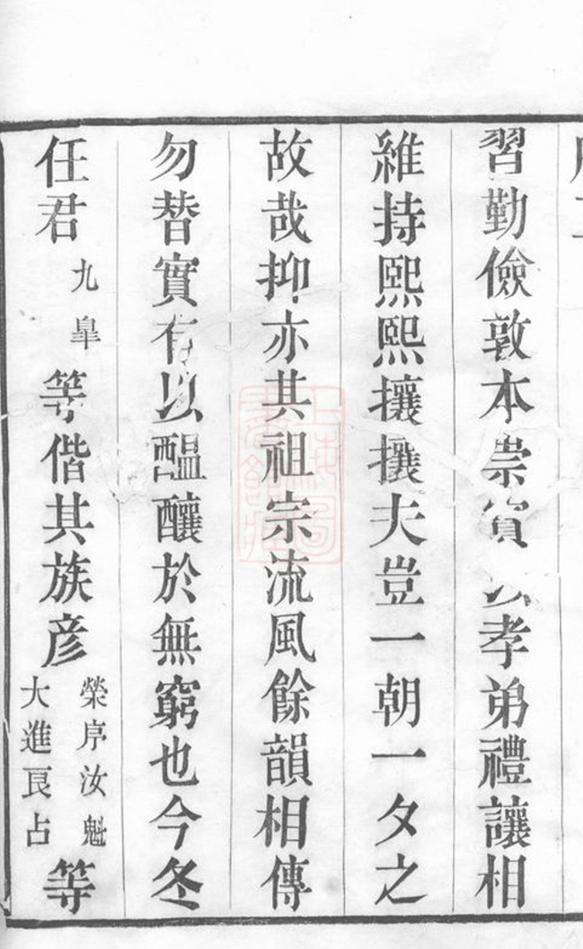 習勤儉敦本崇實以孝弟禮讓相
維持熙熙攘攘夫豈一朝一夕之
故哉抑亦其祖宗流風餘韻相傳
勿替實有以醞釀於無窮也今冬
任君九臯等偕其族彥榮序汝魁大進良占等